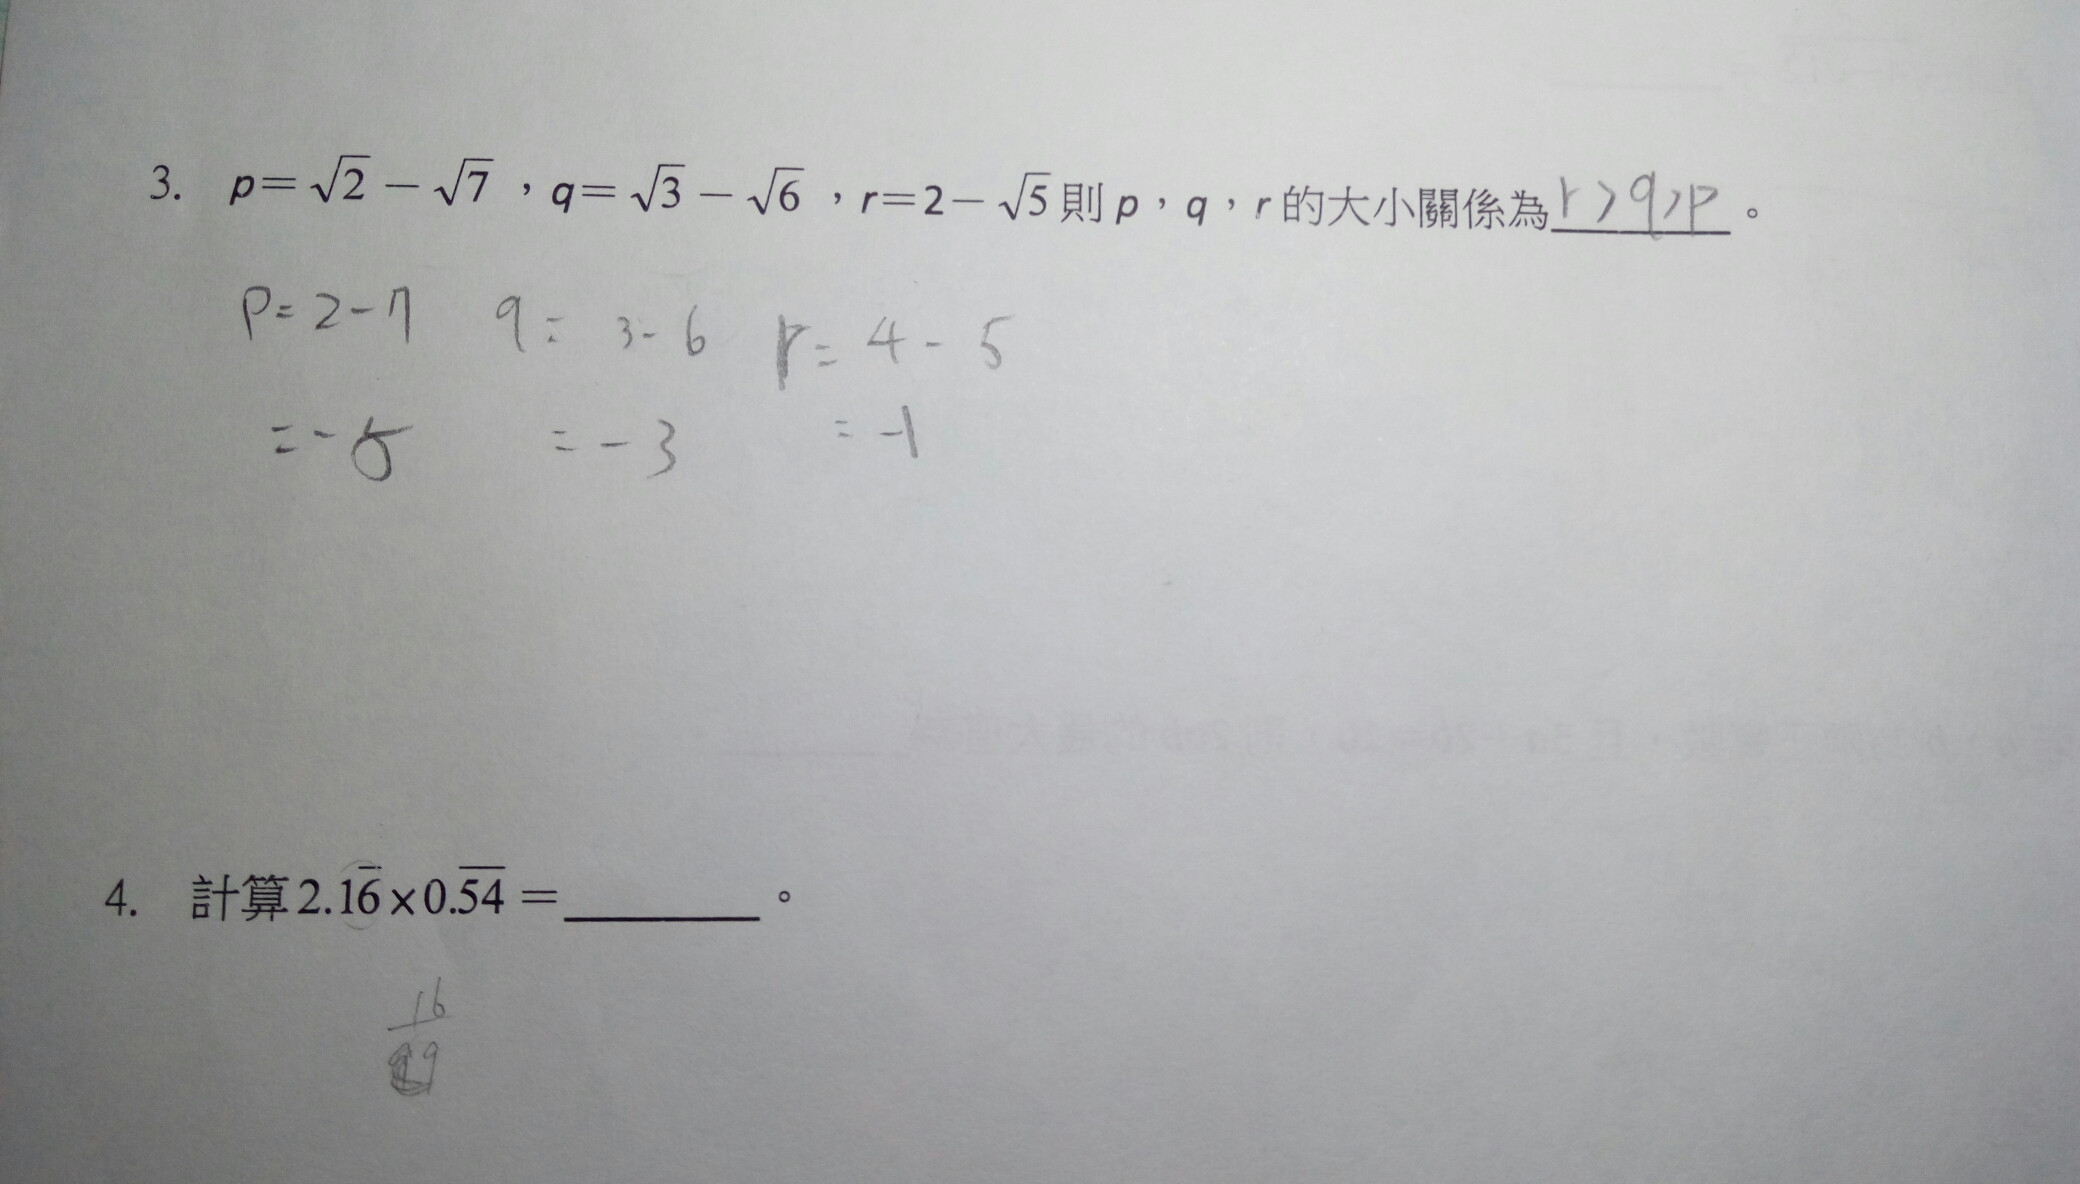 3. p=√2－√7，q=√3－√6，r=2－√5則 p，q，r 的大小關係為r>q>p。
p=2-7 q= 3-6 r=4-5
=-5 =-3 =-1
4. 計算2.16̅×0.5̅4̅＝________。
16
99